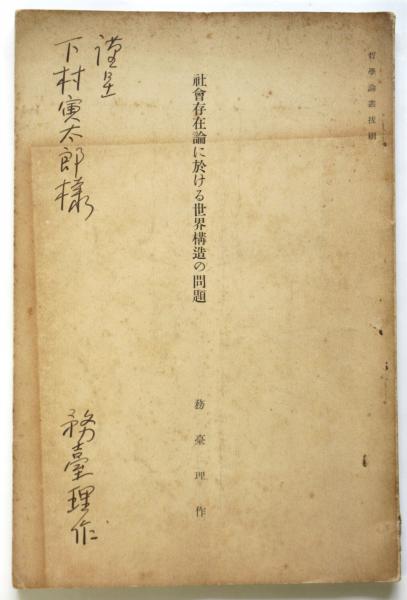 哲學論叢拔刷
社會存在論に於ける世界構造の問題
務臺理作
謹呈
下村寅太郎様
務臺理作